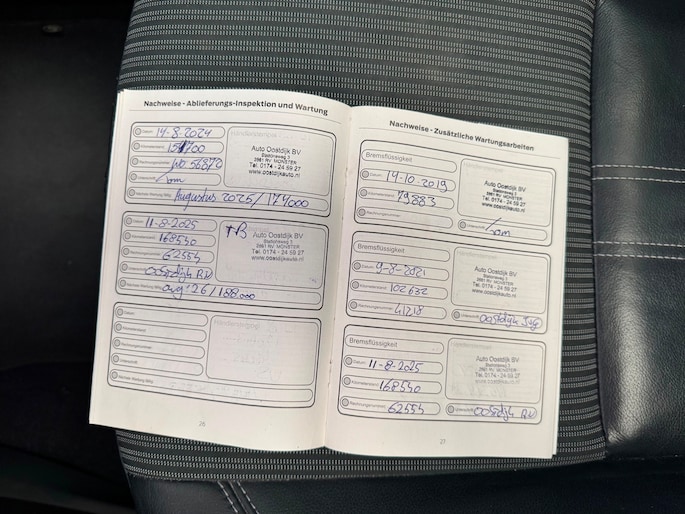 Nachweise - Ablieferungs-Inspektion und Wartung
Datum: 14-8-2024
Kilometerstand:
Rechnungsnummer: 56870
Unterschrift:
Nächste Wartung fällig: Augustus 2025/174000
Händlerstempel
Auto Oostdijk BV
Stationsweg 3
2681 RV MONSTER
Tel. 0174 - 24 59 27
www.oostdijkauto.nl
Datum: 11-8-2025
Kilometerstand: 168540
Rechnungsnummer: 62554
Unterschrift: oostdijk RV
Nächste Wartung fällig: aug '26/188.000
Auto Oostdijk BV
Stationsweg 3
2681 RV MONSTER
Tel. 0174 - 24 59 27
www.oostdijkauto.nl
Datum:
Kilometerstand:
Rechnungsnummer:
Unterschrift:
Nächste Wartung fällig:
26
Nachweise - Zusätzliche Wartungsarbeiten
Bremsflüssigkeit
Datum: 14-10-2019
Kilometerstand: 79883
Rechnungsnummer:
Auto Oostdijk BV
Stationsweg 3
2681 RV MONSTER
Tel. 0174 - 24 59 27
www.oostdijkauto.nl
Unterschrift:
Bremsflüssigkeit
Datum: 9-8-2021
Kilometerstand: 102632
Rechnungsnummer: 41218
Auto Oostdijk BV
Stationsweg 3
2681 RV MONSTER
Tel. 0174 - 24 59 27
www.oostdijkauto.nl
Unterschrift: oostdijk
Bremsflüssigkeit
Datum: 11-8-2025
Kilometerstand: 168540
Rechnungsnummer: 62554
Auto Oostdijk BV
Stationsweg 3
2681 RV MONSTER
Tel. 0174 - 24 59 27
www.oostdijkauto.nl
Unterschrift: oostdijk RV
27